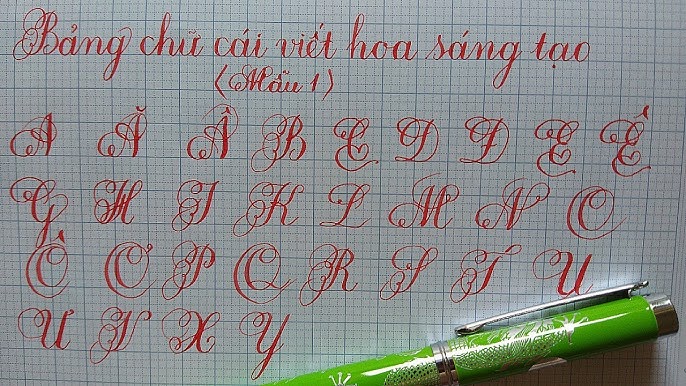 Bảng chữ cái viết hoa sáng tạo
(Mẫu 1)
A Ă Â B C D Đ E Ê
G H I K L M N O
Ô Ơ P Q R S T U
Ư V X Y